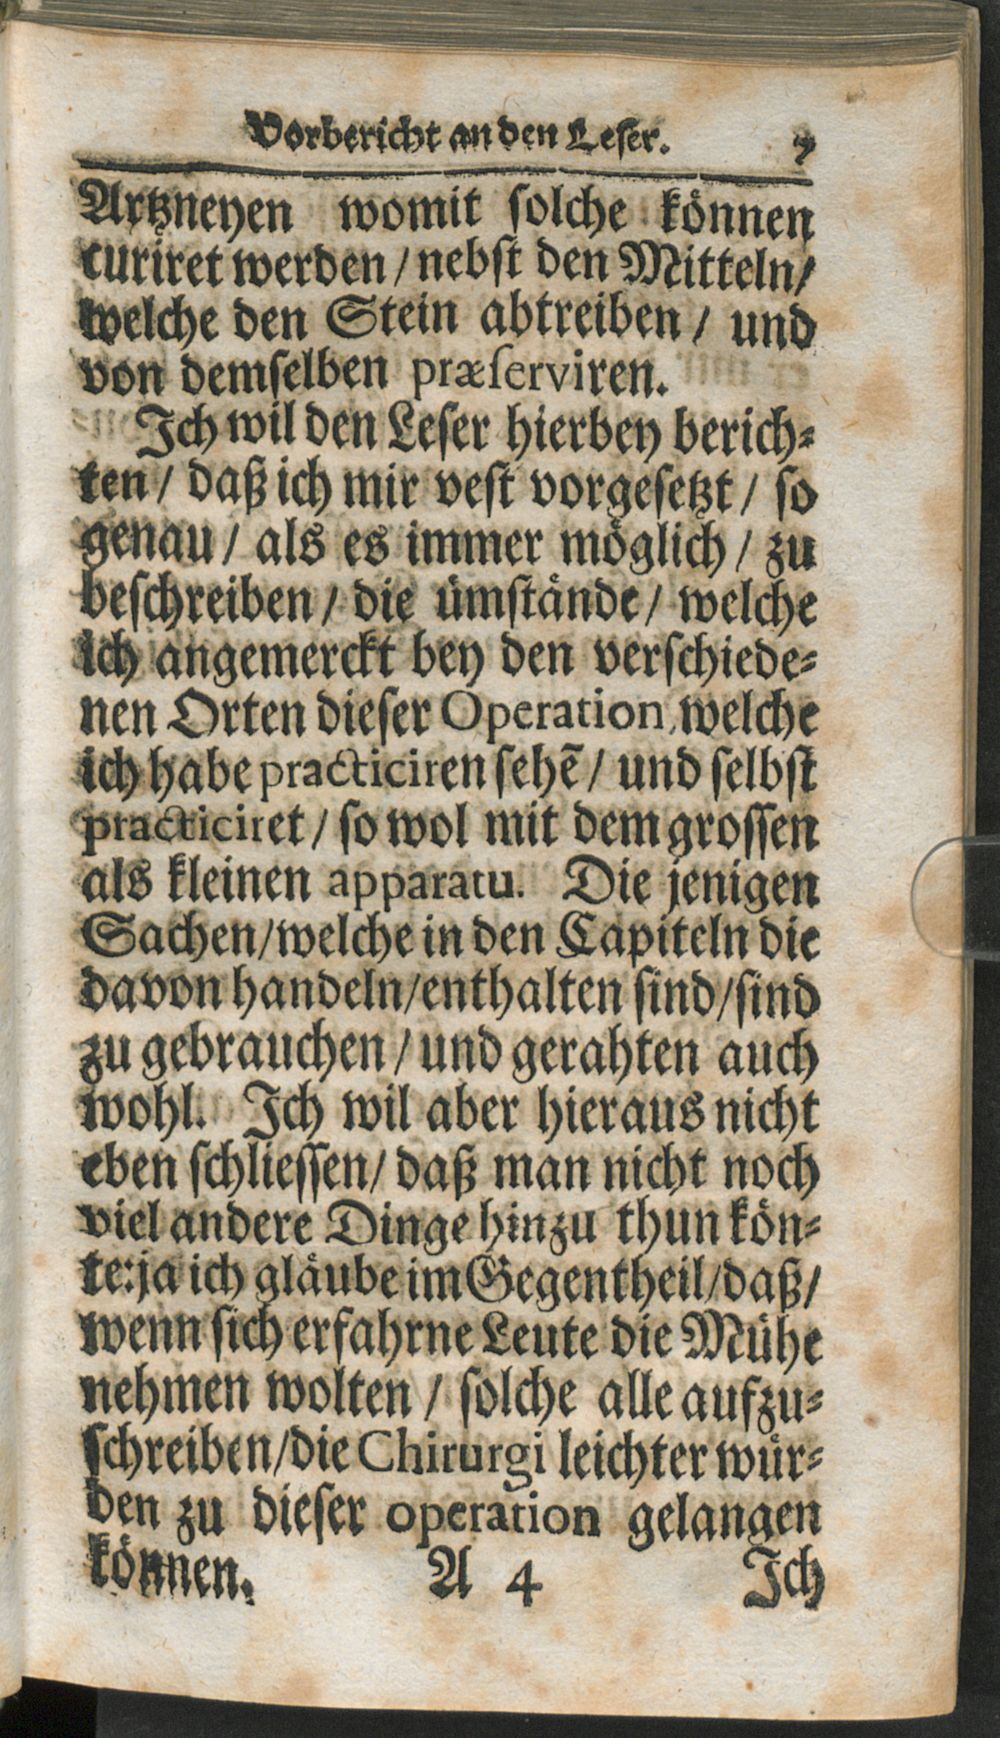 Vorbericht an den Leser. 7
Artzneyen womit solche können
curiret werden / nebst den Mitteln /
welche den Stein abtreiben / und
von demselben præserviren.
Ich wil den Leser hierbey berich⸗
ten / daß ich mir vest vorgesetzt / so
genau / als es immer möglich / zu
beschreiben / die ümstände / welche
ich angemerckt bey den verschiede⸗
nen Orten dieser Operation, welche
ich habe practiciren sehẽ / und selbst
practiciret / so wol mit dem grossen
als kleinen apparatu. Die jenigen
Sachen / welche in den Capiteln die
davon handeln / enthalten sind / sind
zu gebrauchen / und gerahten auch
wohl. Ich wil aber hieraus nicht
eben schliessen / daß man nicht noch
viel andere Dinge hinzu thun kön⸗
te: ja ich gläube im Gegentheil / daß /
wenn sich erfahrne Leute die Mühe
nehmen wolten / solche alle aufzu⸗
schreiben / die Chirurgi leichter wür⸗
den zu dieser operation gelangen
können. A 4 Ich